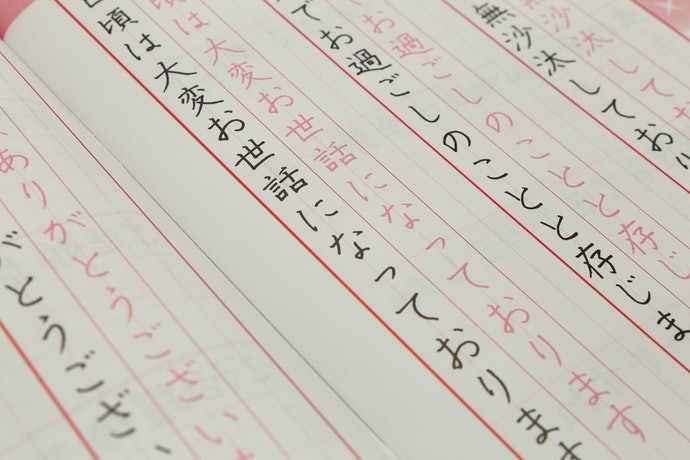 沙汰してお
無沙汰しており
お過ごしのことと存じ
でお過ごしのことと存じま
頃は大変お世話になっております
頃は大変お世話になっております
ありがとうございま
がとうござい